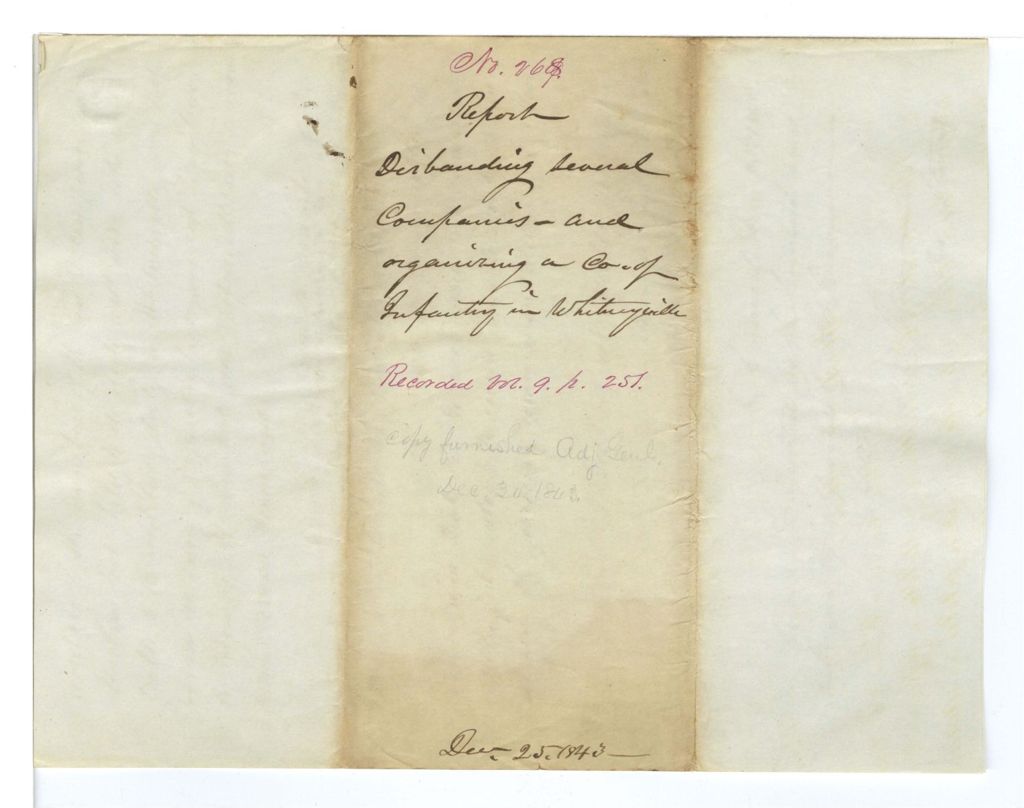 No. 268.
Report
Disbanding several
Companies - and
organizing a Co. of
Infantry in Whitneyville
Recorded Vol. 9. p. 251.
Copy furnished Adj. Genl.
Dec. 30. 1843.
Dec. 25. 1843